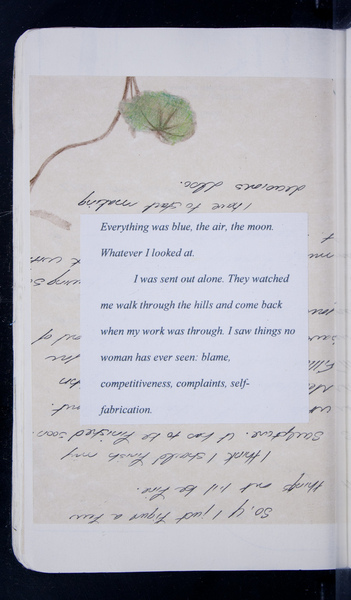 Everything was blue, the air, the moon.
Whatever I looked at.
I was sent out alone. They watched
me walk through the hills and come back
when my work was through. I saw things no
woman has ever seen: blame,
competitiveness, complaints, self-
fabrication.
So, if I just figure a few
things out I'll be fine.
I think I should finish my
sculpture. It has to be finished soon.
I have to start making
decisions also.